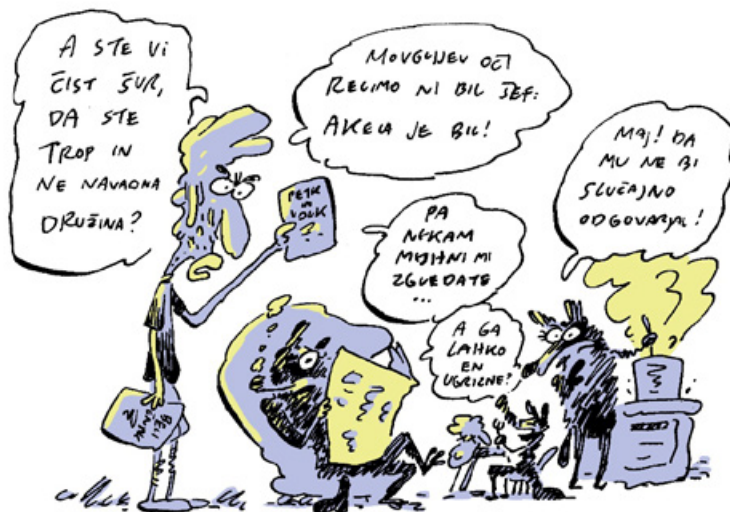 A STE VI
ČIST ŠUR,
DA STE
TROP IN
NE NAVADNA
DRUŽINA?
MOVGLIJEV OČI
RECIMO NI BIL ŠEF:
AKELA JE BIL!
PETR
IN
VOLK
PA
NEKAM
MEJHNI MI
ZGLEDATE
...
A GA
LAHKO
EN
UGRIZNE?
MEJ! DA
MU NE BI
SLUČAJNO
ODGOVARJAL!
BELI